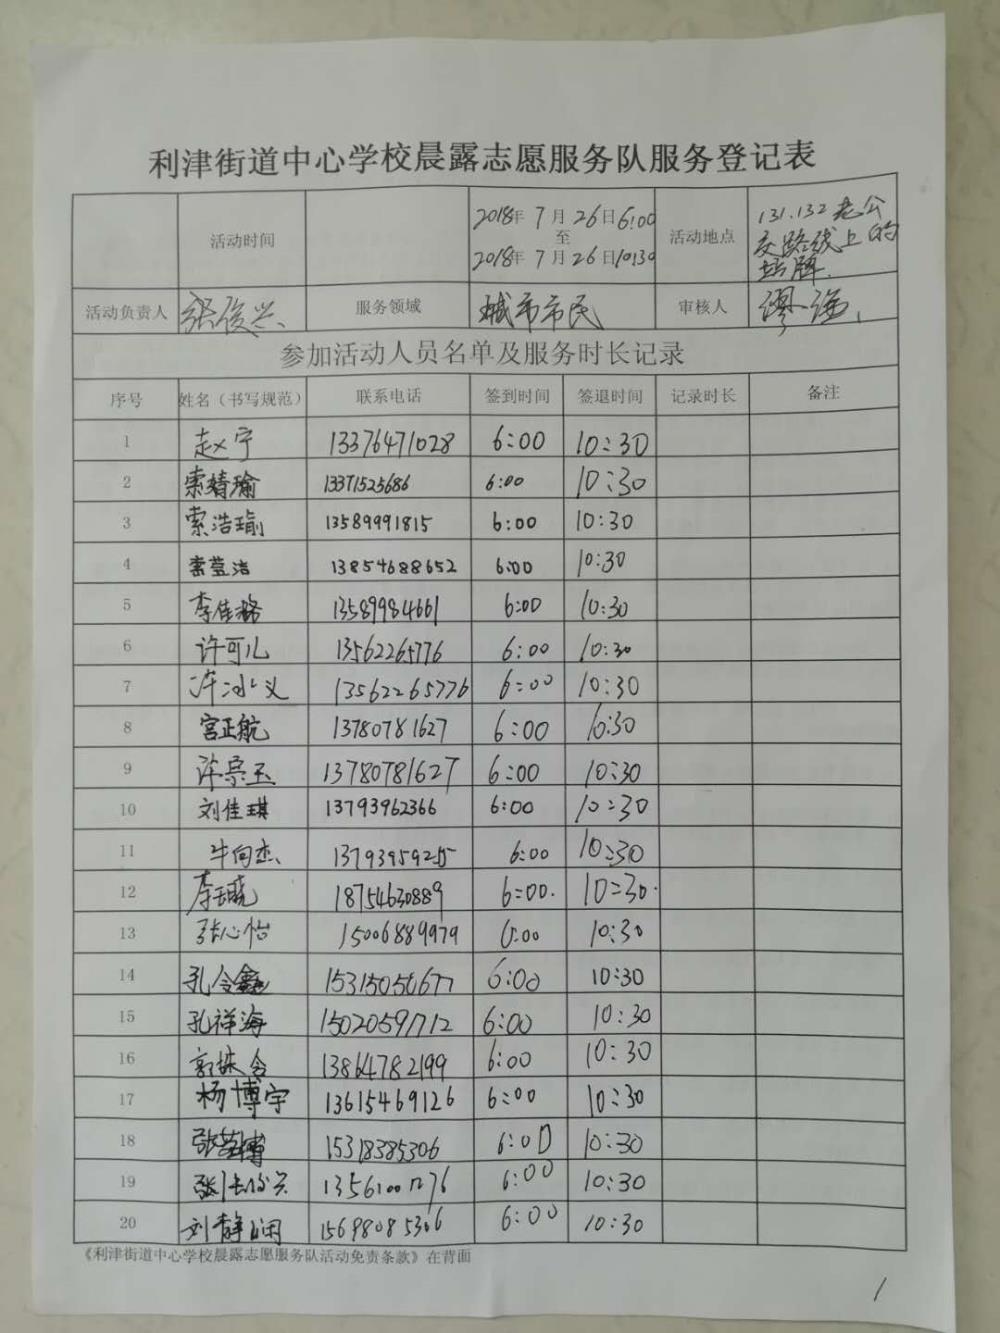 利津街道中心学校晨露志愿服务队服务登记表
活动时间 2018年7月26日6:00 至 2018年7月26日10:30 活动地点 131.132老公交路线上的站牌.
活动负责人 张俊兴 服务领域 城市市民 审核人
参加活动人员名单及服务时长记录
序号 姓名（书写规范） 联系电话 签到时间 签退时间 记录时长 备注
1 赵宁 13376471028 6:00 10:30
2 索婧瑜 13371525686 6:00 10:30
3 索浩瑜 13589991815 6:00 10:30
4 索莹洁 13854688652 6:00 10:30
5 李佳璐 13589984661 6:00 10:30
6 许可儿 13562265776 6:00 10:30
7 13562265776 6:00 10:30
8 宫正航 13780781627 6:00 10:30
9 13780781627 6:00 10:30
10 刘佳琪 13793962366 6:00 10:30
11 牛向杰 6:00 10:30
12 李玉晓 18754630889 6:00. 10:30.
13 张心怡 15006889979 6:00 10:30
14 孔令鑫 15315050677 6:00 10:30
15 孔祥海 15020591712 6:00 10:30
16 13864782199 6:00 10:30
17 杨博宇 13615469126 6:00 10:30
18 15318385306 6:00 10:30
19 6:00 10:30
20 刘静娴 15698085306 6:00 10:30
《利津街道中心学校晨露志愿服务队活动免责条款》在背面
1